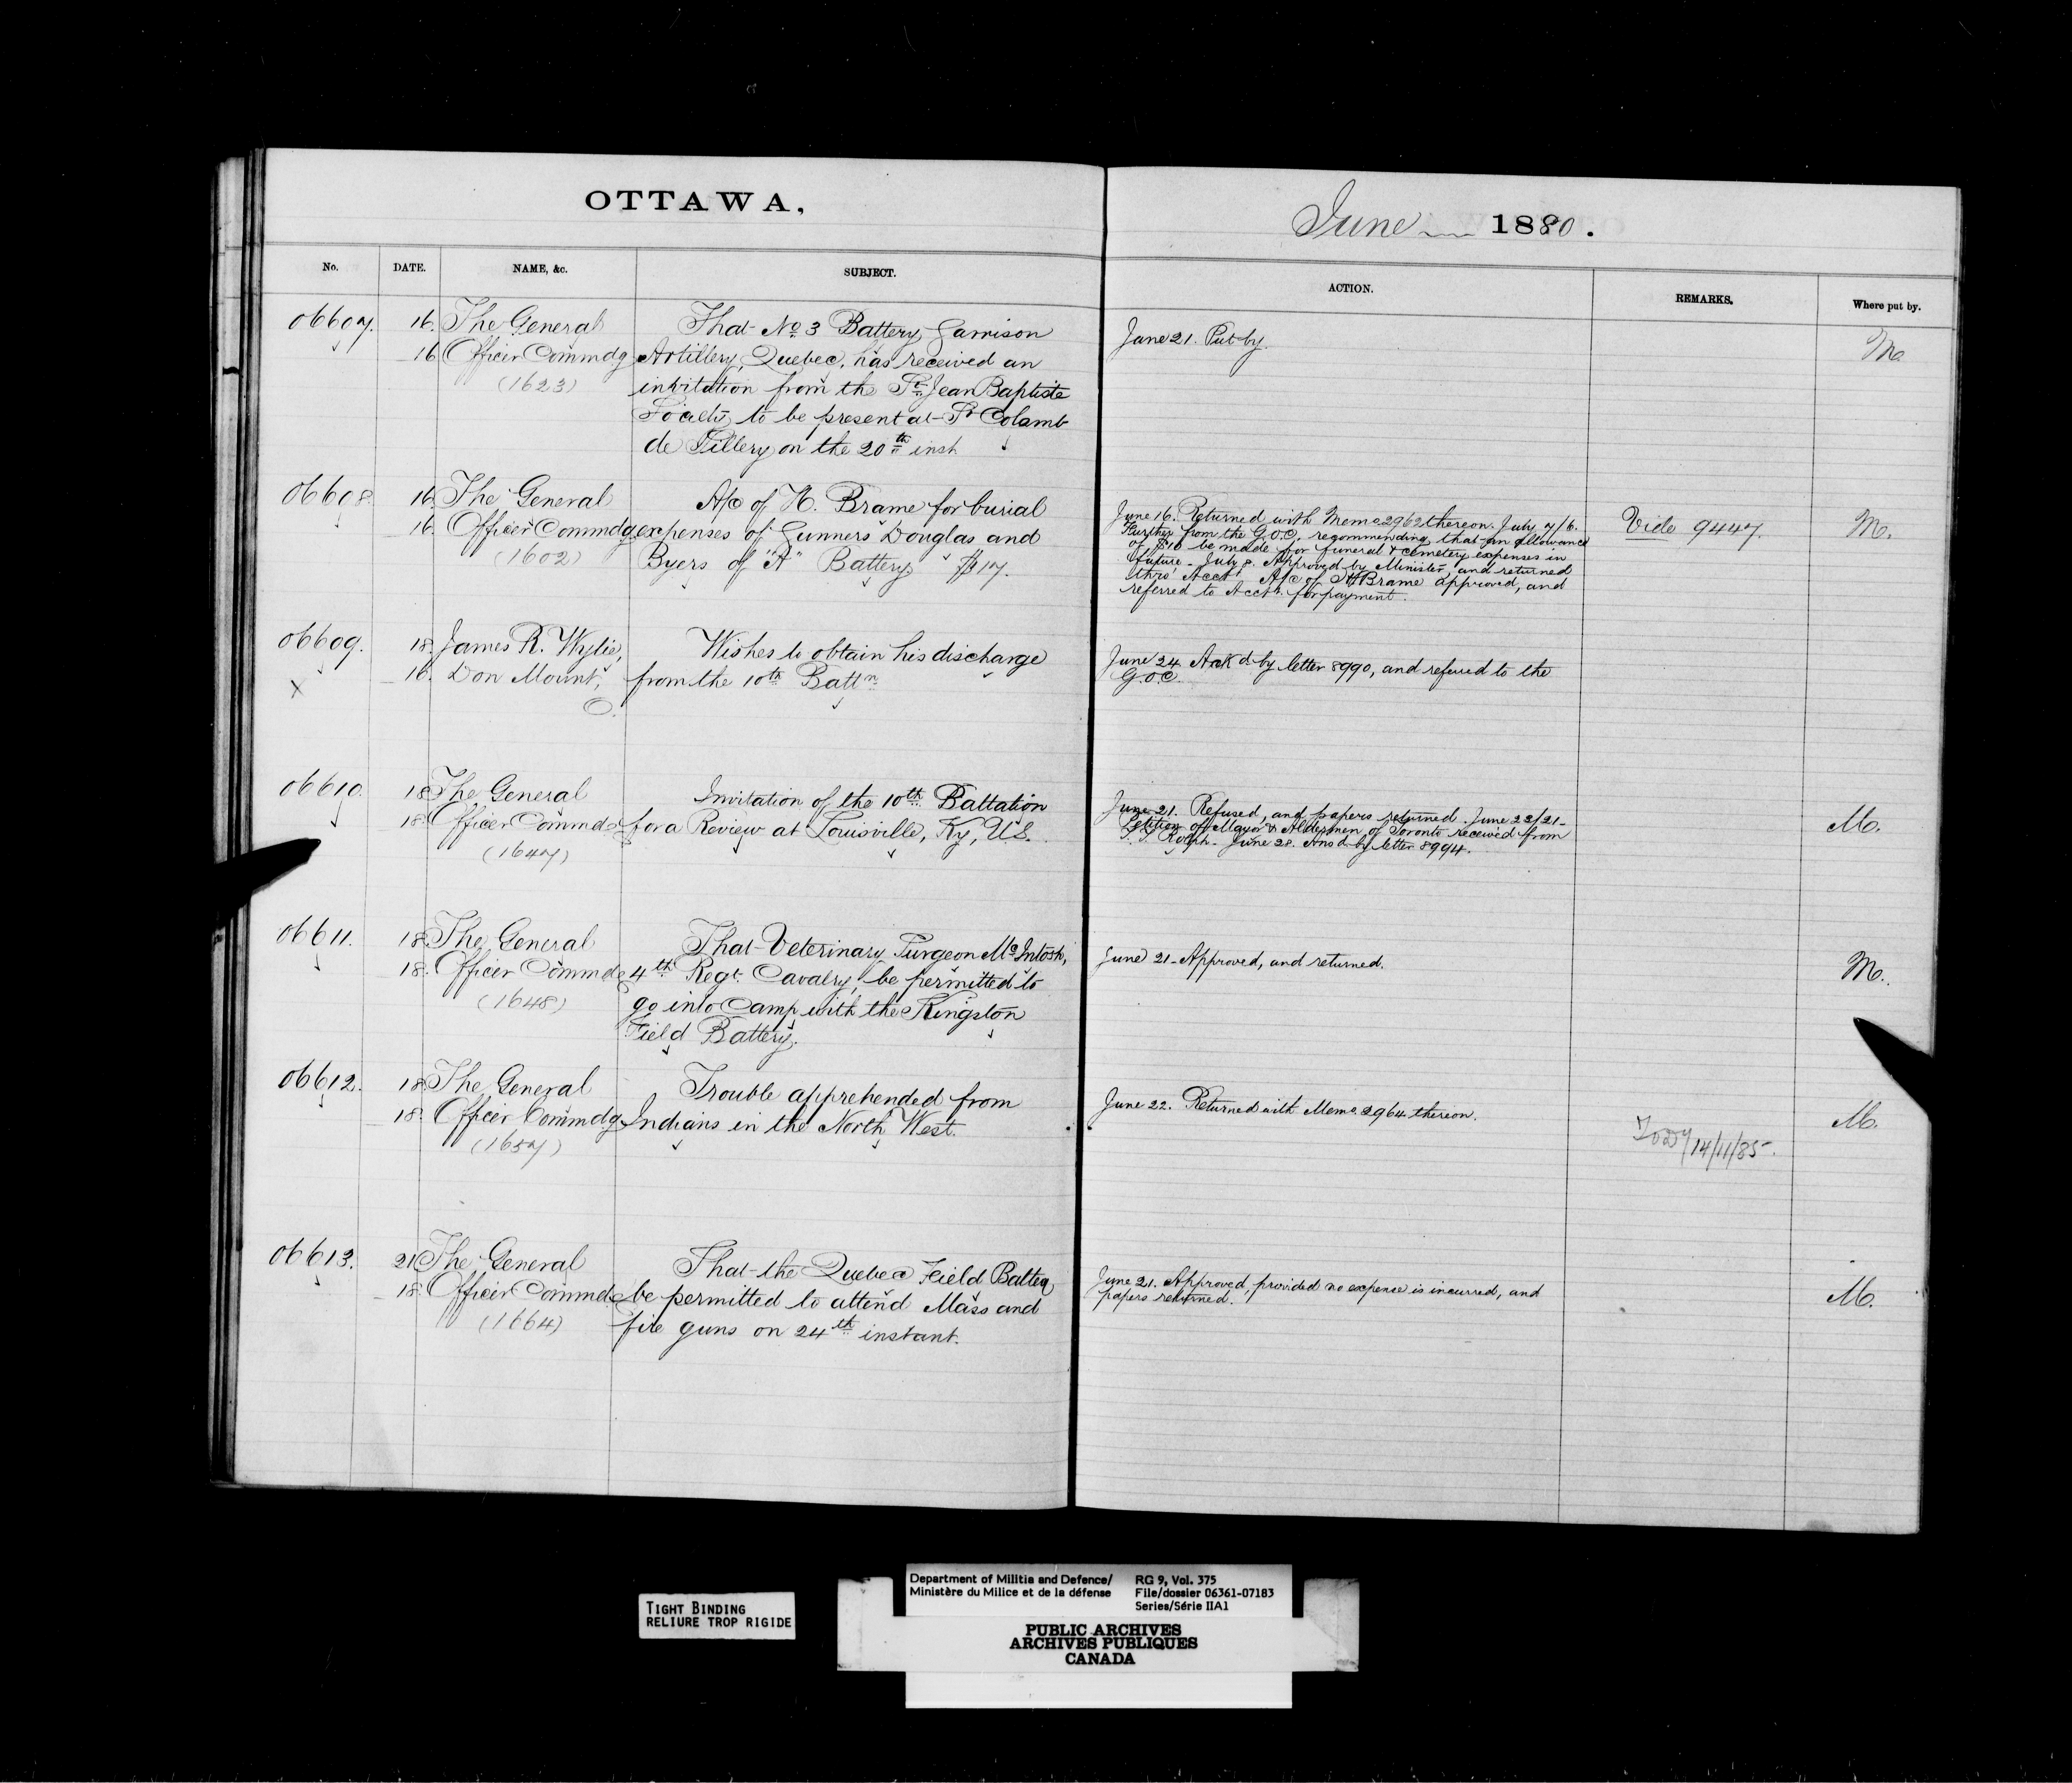 OTTAWA,
June 1880.
No. DATE. NAME, &c. SUBJECT.
ACTION. REMARKS. Where put by.
06607. 16. The General That No 3 Battery Garrison
16 Officer Commdg Artillery, Quebec, has received an
(1623) invitation from the St Jean Baptiste
Society to be present at St Colomb
de Sillery on the 20th inst
June 21. Put by. M.
06608. 16. The General A/c of H. Brame for burial
16. Officer Commdg expenses of Gunners Douglas and
(1602) Byers of "A" Battery $17.
June 16. Returned with Memo 2962 thereon. July 7/6.
Further from the G.O.C., recommending that an allowance
of $10 be made for funeral & cemetery expenses in
future - July 8. Approved by Minister, and returned
thro' Acct. A/c of H Brame approved, and
referred to Acct. for payment.
Vide 9447. M.
06609. 18. James R. Wylie, Wishes to obtain his discharge
16. Don Mount, from the 10th Battn
X O.
June 24 Ackd by letter 8990, and referred to the
G.O.C.
06610. 18 The General Invitation of the 10th Battalion
18. Officer Commdg for a Review at Louisville, Ky, U.S.
(1647)
June 21. Refused, and papers returned. June 22/21-
Petition of Mayor & Aldermen of Toronto received from
Rolph - June 28. Ansd by letter 8994.
M.
06611. 18 The General That Veterinary Surgeon McIntosh,
18. Officer Commdg 4th Regt. Cavalry, be permitted to
(1648) go into Camp with the Kingston
Field Battery.
June 21 - Approved, and returned.
M.
06612. 18 The General Trouble apprehended from
18. Officer Commdg Indians in the North West.
(1657)
June 22. Returned with Memo 2964 thereon.
14/11/85
M.
06613. 21 The General That the Quebec Field Battery
18. Officer Commdg be permitted to attend Mass and
(1664) fire guns on 24th instant.
June 21. Approved, provided no expense is incurred, and
papers returned.
M.
TIGHT BINDING
RELIURE TROP RIGIDE
Department of Militia and Defence/
Ministère du Milice et de la défense
RG 9, Vol. 375
File/dossier 06361-07183
Series/Série IIA1
PUBLIC ARCHIVES
ARCHIVES PUBLIQUES
CANADA